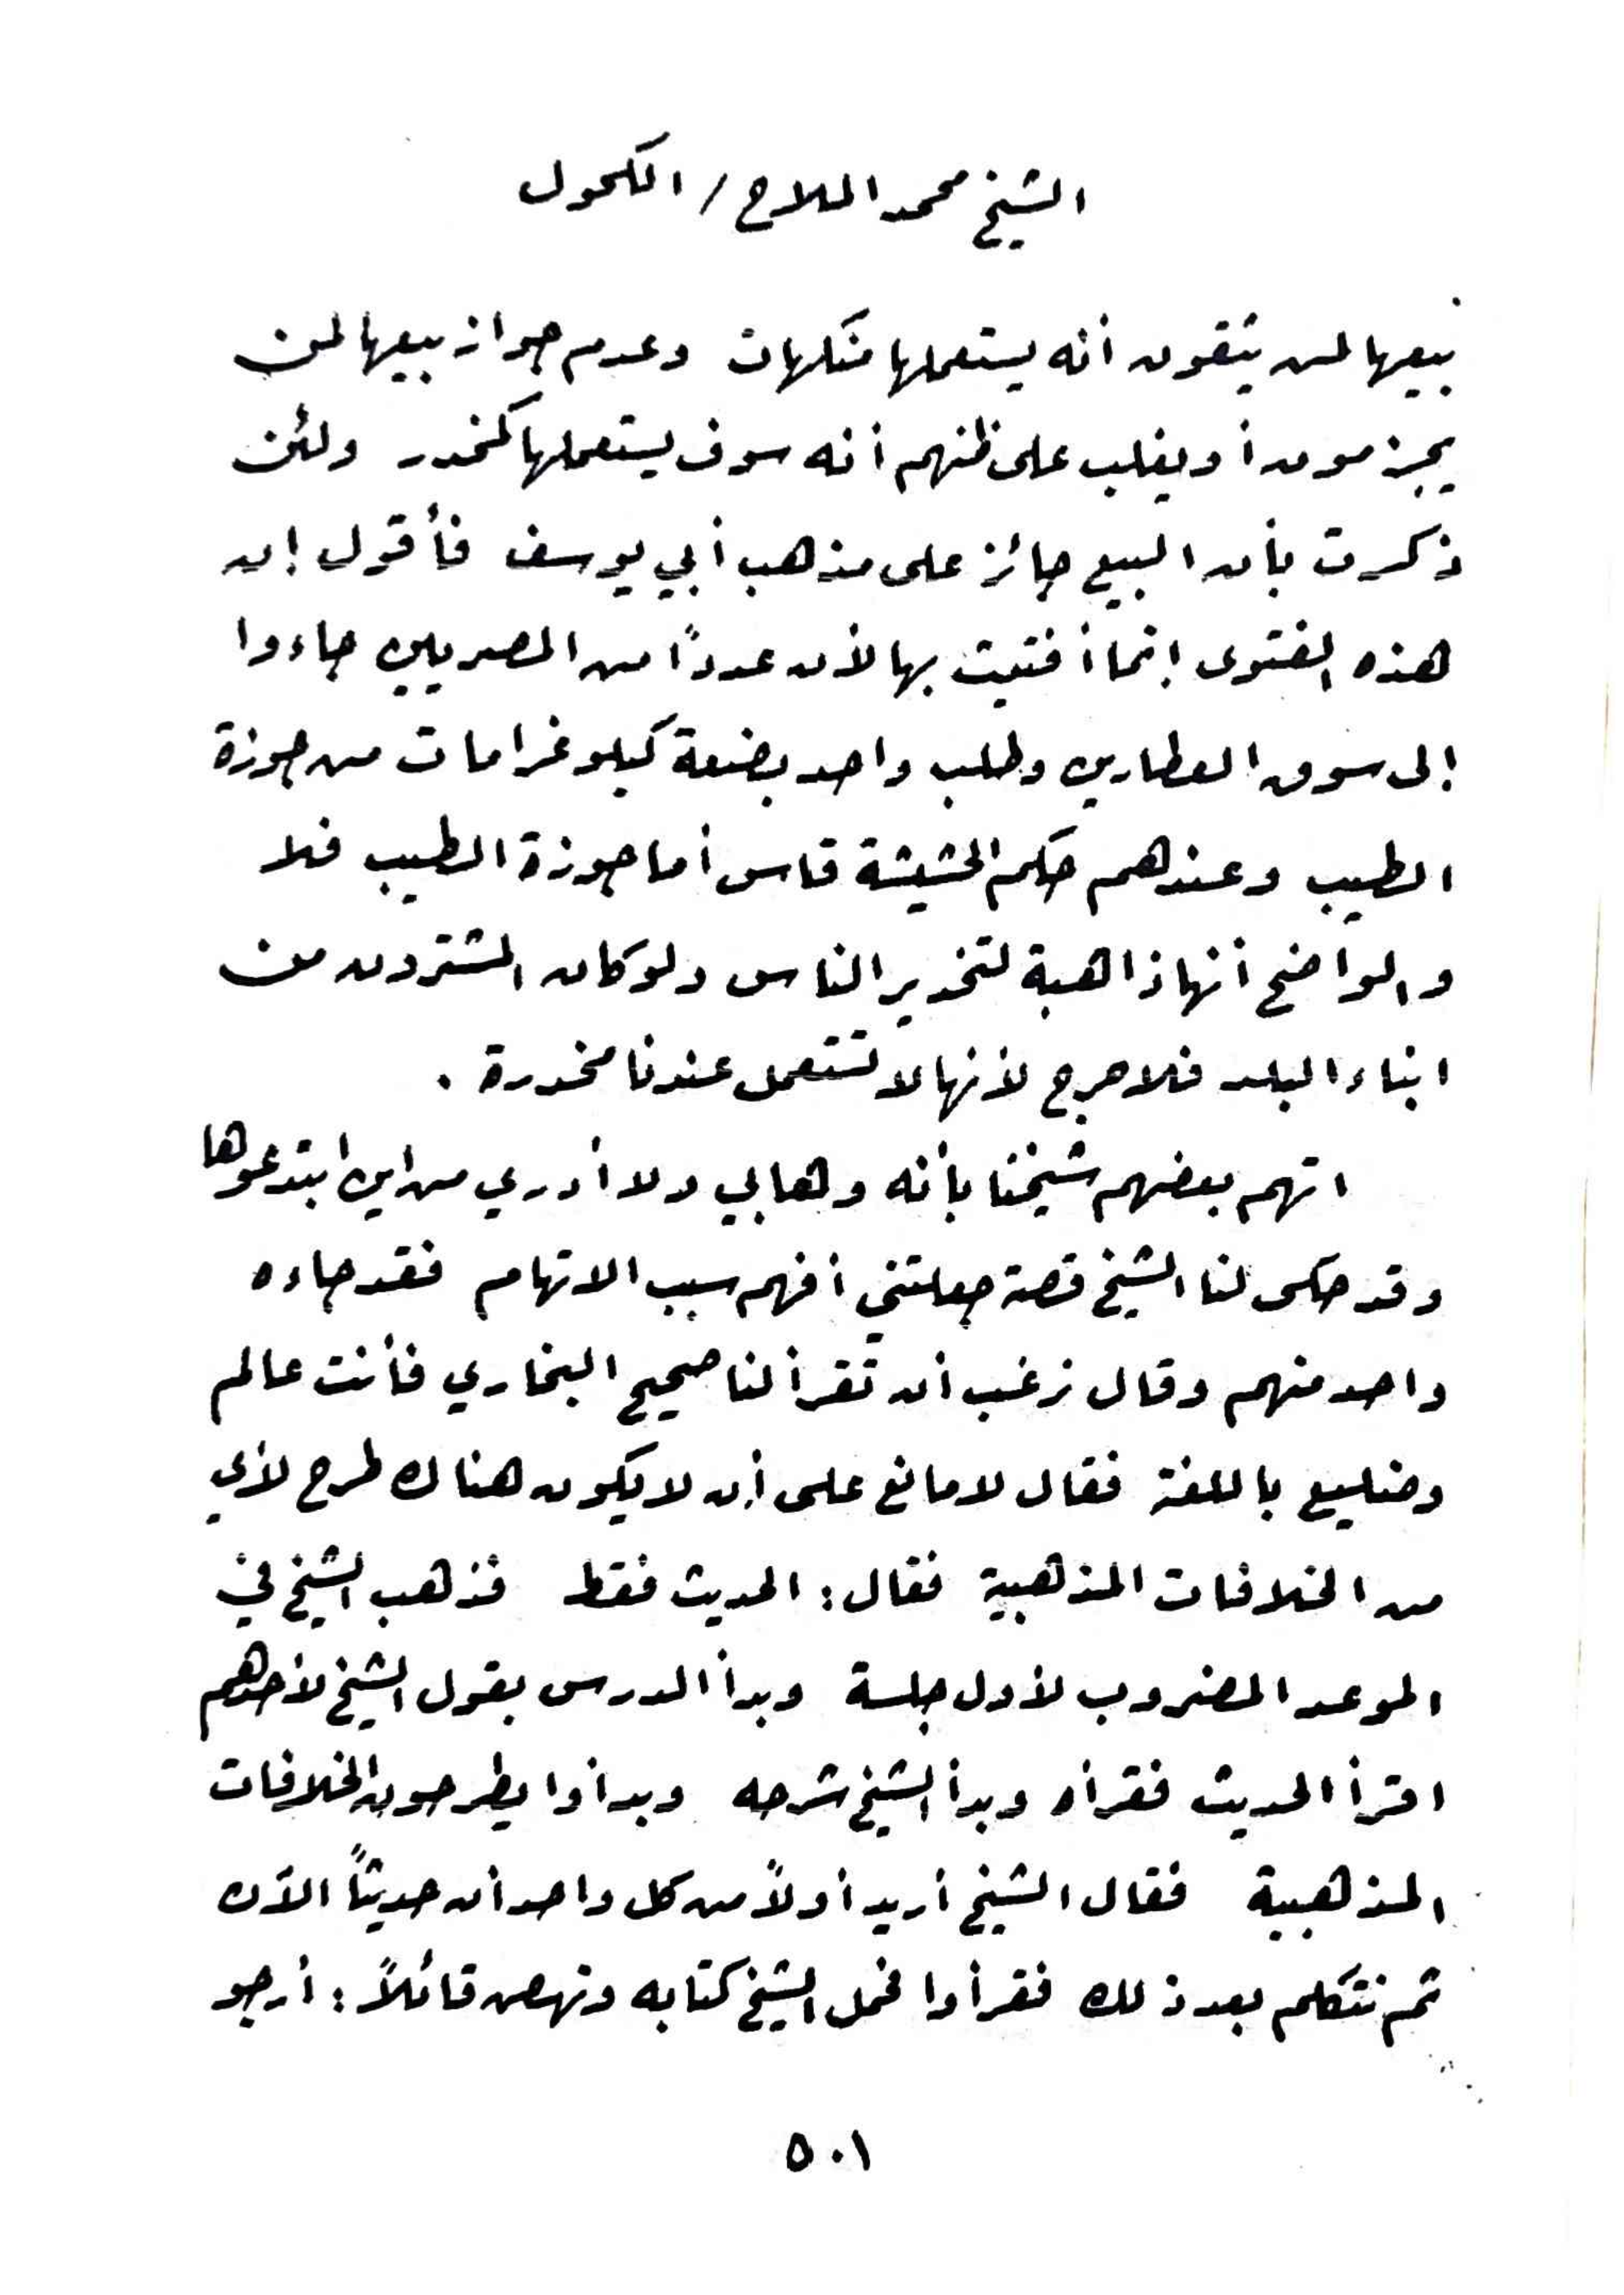 الشيخ محمد الملاح / الكحول
ببيعها لمن يثقون أنه يستعملها منكهات وعدم جواز بيعها لمن
يجزمون أو يغلب على ظنهم أنه سوف يستعملها كمخدر ولئن
ذكرت بأن البيع جائز على مذهب أبي يوسف فأقول إن
هذه الفتوى إنما أفتيت بها لأن عدداً من المصريين جاءوا
إلى سوق العطارين وطلب واحد بضعة كيلو غرامات من جوزة
الطيب وعندهم حكم الحشيشة قاس أما جوزة الطيب فلا
والواضح أنها ذاهبة لتخدير الناس ولو كان المشترون من
ابناء البلد فلا حرج لأنها لا تستعمل عندنا مخدرة .
اتهم بعضهم شيخنا بأنه وهابي ولا أدري من اين ابتدعوها
وقد حكى لنا الشيخ قصة جعلتني أفهم سبب الاتهام فقد جاءه
واحد منهم وقال نرغب أن تقرأ لنا صحيح البخاري فأنت عالم
وضليع باللغة فقال لا مانع على أن لا يكون هناك طرح لأي
من الخلافات المذهبية فقال : الحديث فقط فذهب الشيخ في
الموعد المضروب لأول جلسة وبدأ الدرس بقول الشيخ لأحدهم
اقرأ الحديث فقرأه وبدأ الشيخ شرحه وبدأوا يطرحون الخلافات
المذهبية فقال الشيخ أريد أولاً من كل واحد أن حديثاً الآن
ثم نتكلم بعد ذلك فقرأوا فحمل الشيخ كتابه ونهض قائلاً : أرجو
٥٠١